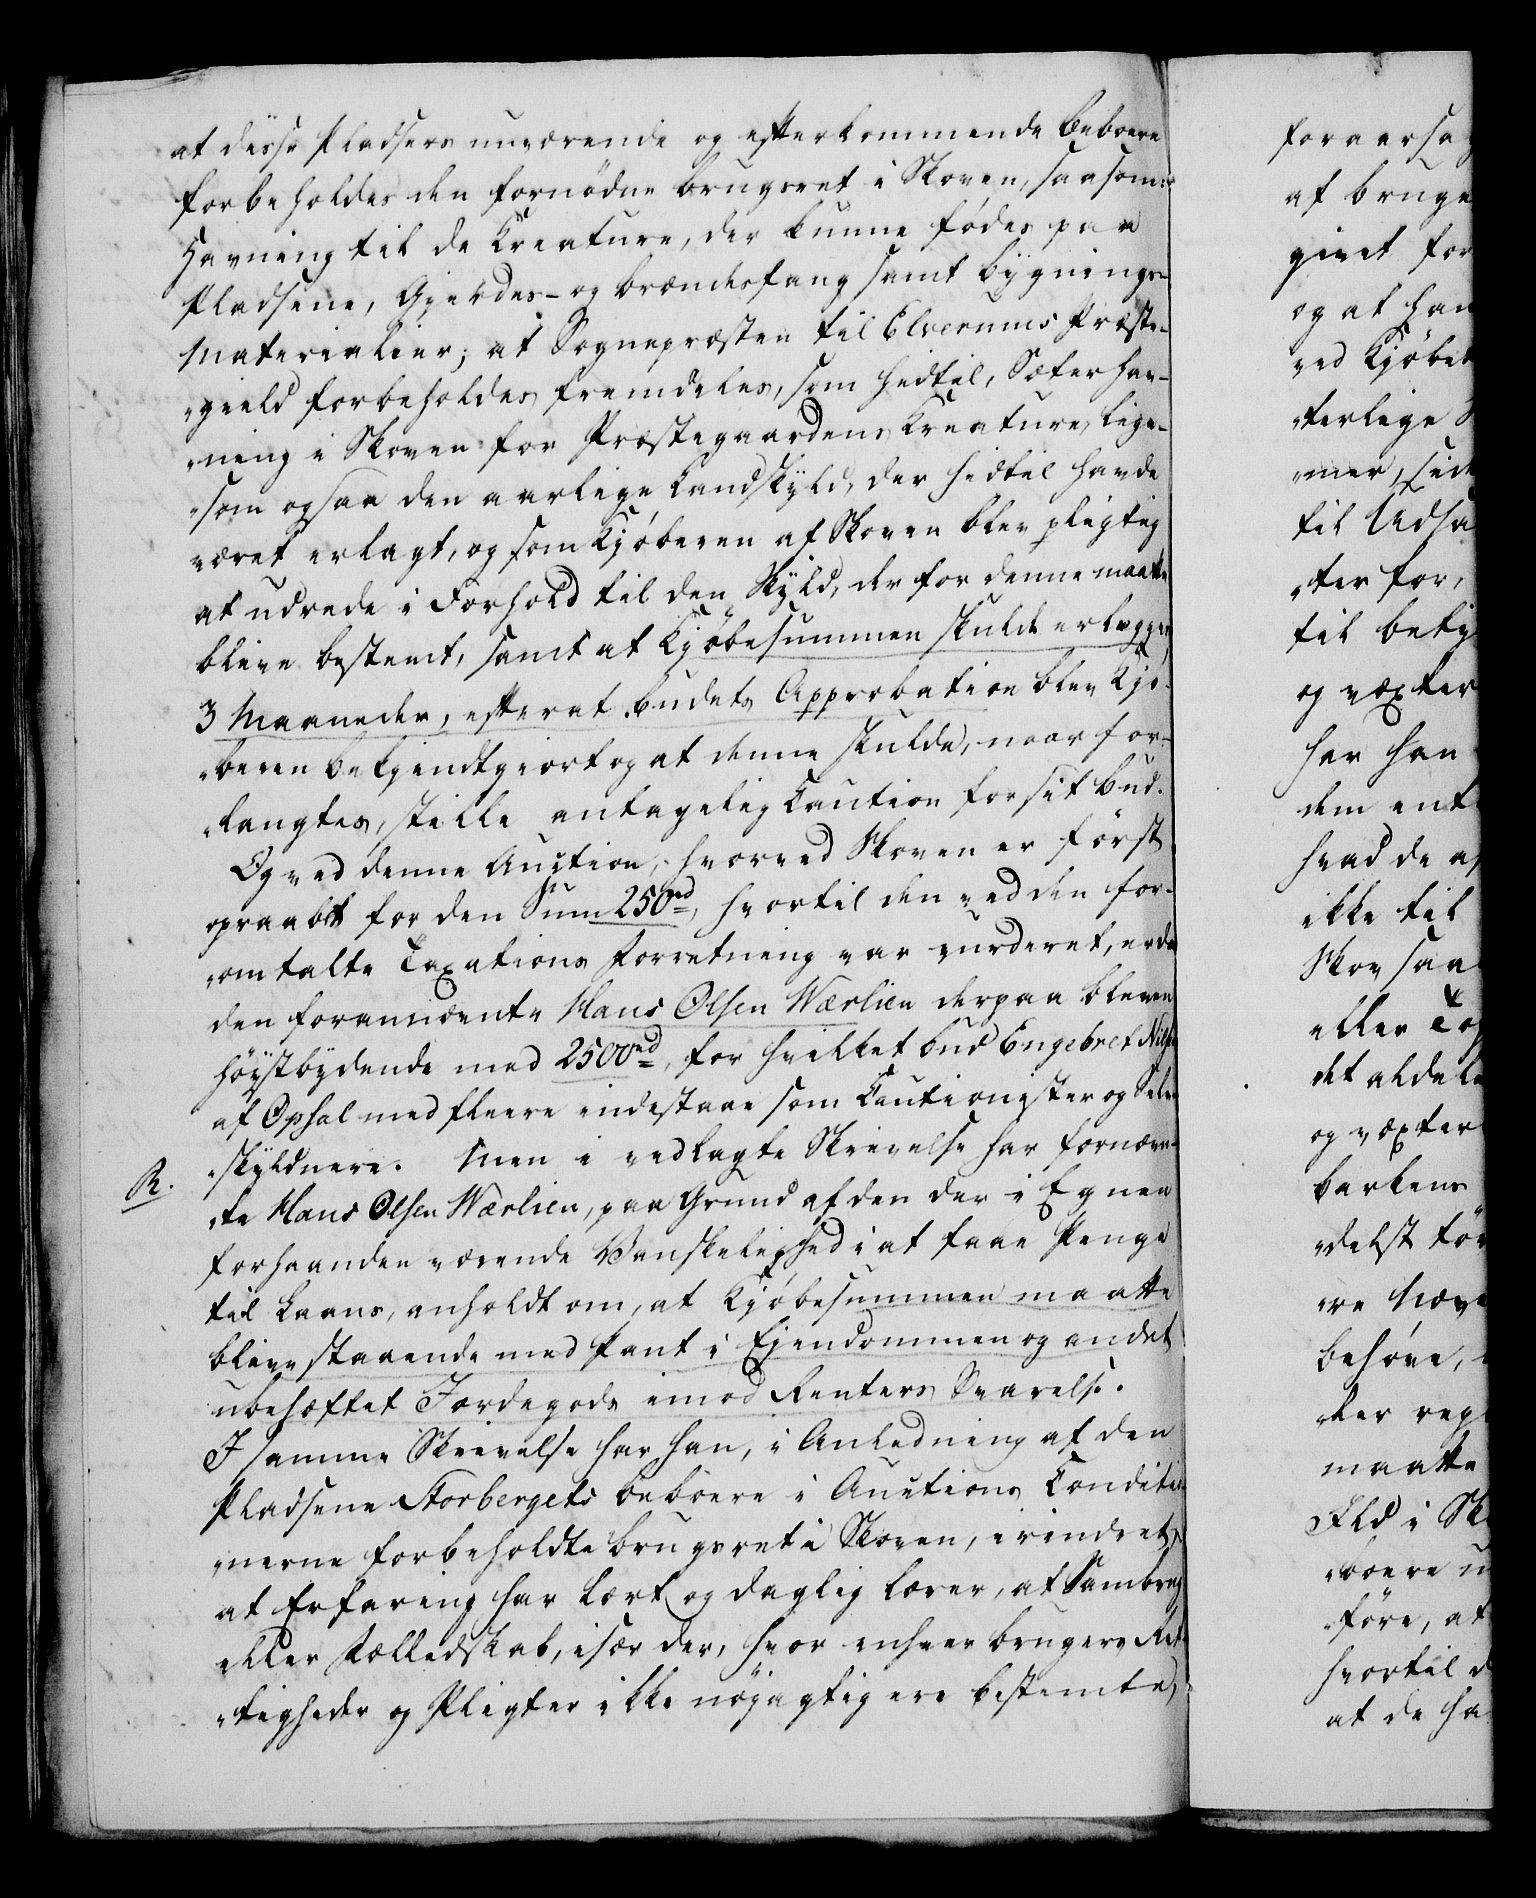 at disse Pladsers nuværende og efterkommende Beboere
forbeholdes den fornödne brugsret i Skoven, saasom:
Havning til de Kreature, der kunne födes paa
Pladsene, Gjerdes- og brændefang samt bygnings-
Materialier; at Sognepræsten til Elverums Præste-
„gield forbeholdes fremdeles, som hidtil, Sæterhav-
„ning i Skoven for Præstegaardens Kreature, lige-
„som ogsaa den aarlige Landskyld, der hidtil havde
været erlagt, og som Kjöberen af Skoven blev pligtig
at udrede i Forhold til den Skyld, der for denne maatte
blive bestemt, samt at Kjöbesummen skulde erlægges
3 Maaneder, efterat budets Approbation blev Kjö-
„beren bekjendtgiort og at denne skulde, naar for-
„langtes, stille antagelig Caution for sit bud.
Og ved denne Auction, hvorved Skoven er först
opraabt for den Sum 250rd, hvortil den ved den for-
„omtalte Taxations Forretning var vurderet, er da
den foranmeldte Hans Olsen Værlien derpaa bleven
höystbydende med 2500rd, for hvilket bud Engebret Nilsen
af Ophal med fleere indestaae som Cautionister og Selv-
„skyldnere. Men i vedlagte Skrivelse har fornævn-
R.
„te Hans Olsen Værlien, paa Grund af den der i Egnen
forhaanden værende Vanskelighed i at faae Penge
til Laans, anholdt om, at Kjöbesummen maatte
blive staaende med Pant i Ejendommen og andet
ubehæftet Jordegods imod Renters Svarelse.
I samme Skrivelse har han, i Anledning af den
Pladsene Storbergets beboere i Auctions Conditio-
„nerne forbeholdte brugsret i Skoven, erindret,
at Erfaring har lært og daglig lærer, at Sambrug
eller Fælledskab, især der, hvor enhver brugers Ret-
„tigheder og Pligter ikke nöjagtig ere bestemte,
foraarsa
af bruge
givet for
og at han
ved Kjöbet
„terlige
„mer, sid
til Udsa
„ter for,
til bety
og væxter
har han
dem ent
hvad de a
ikke til
Skov saa
eller To
det aldele
og væxter
barkens
„delst tör
„re Næv
behöve,
„ler reg
maatte
Ild i Sk
„boere u
„före, at
hvortil d
at de ha